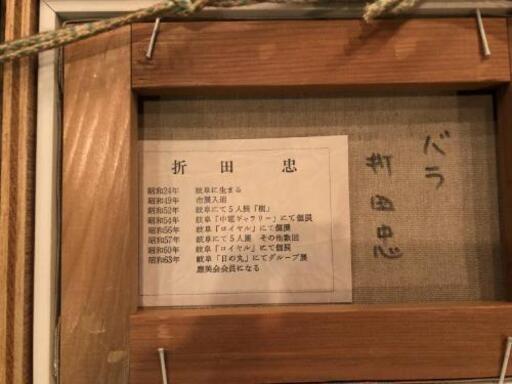 折田 忠
昭和24年 岐阜に生まる
昭和49年 市展入選
昭和52年 岐阜にて5人展「樹」
昭和54年 岐阜「中電ギャラリー」にて個展
昭和56年 岐阜「ロイヤル」にて個展
昭和57年 岐阜にて5人展 その他数回
昭和60年 岐阜「ロイヤル」にて個展
昭和63年 岐阜「日の丸」にてグループ展
美会会員になる
バラ
折田忠